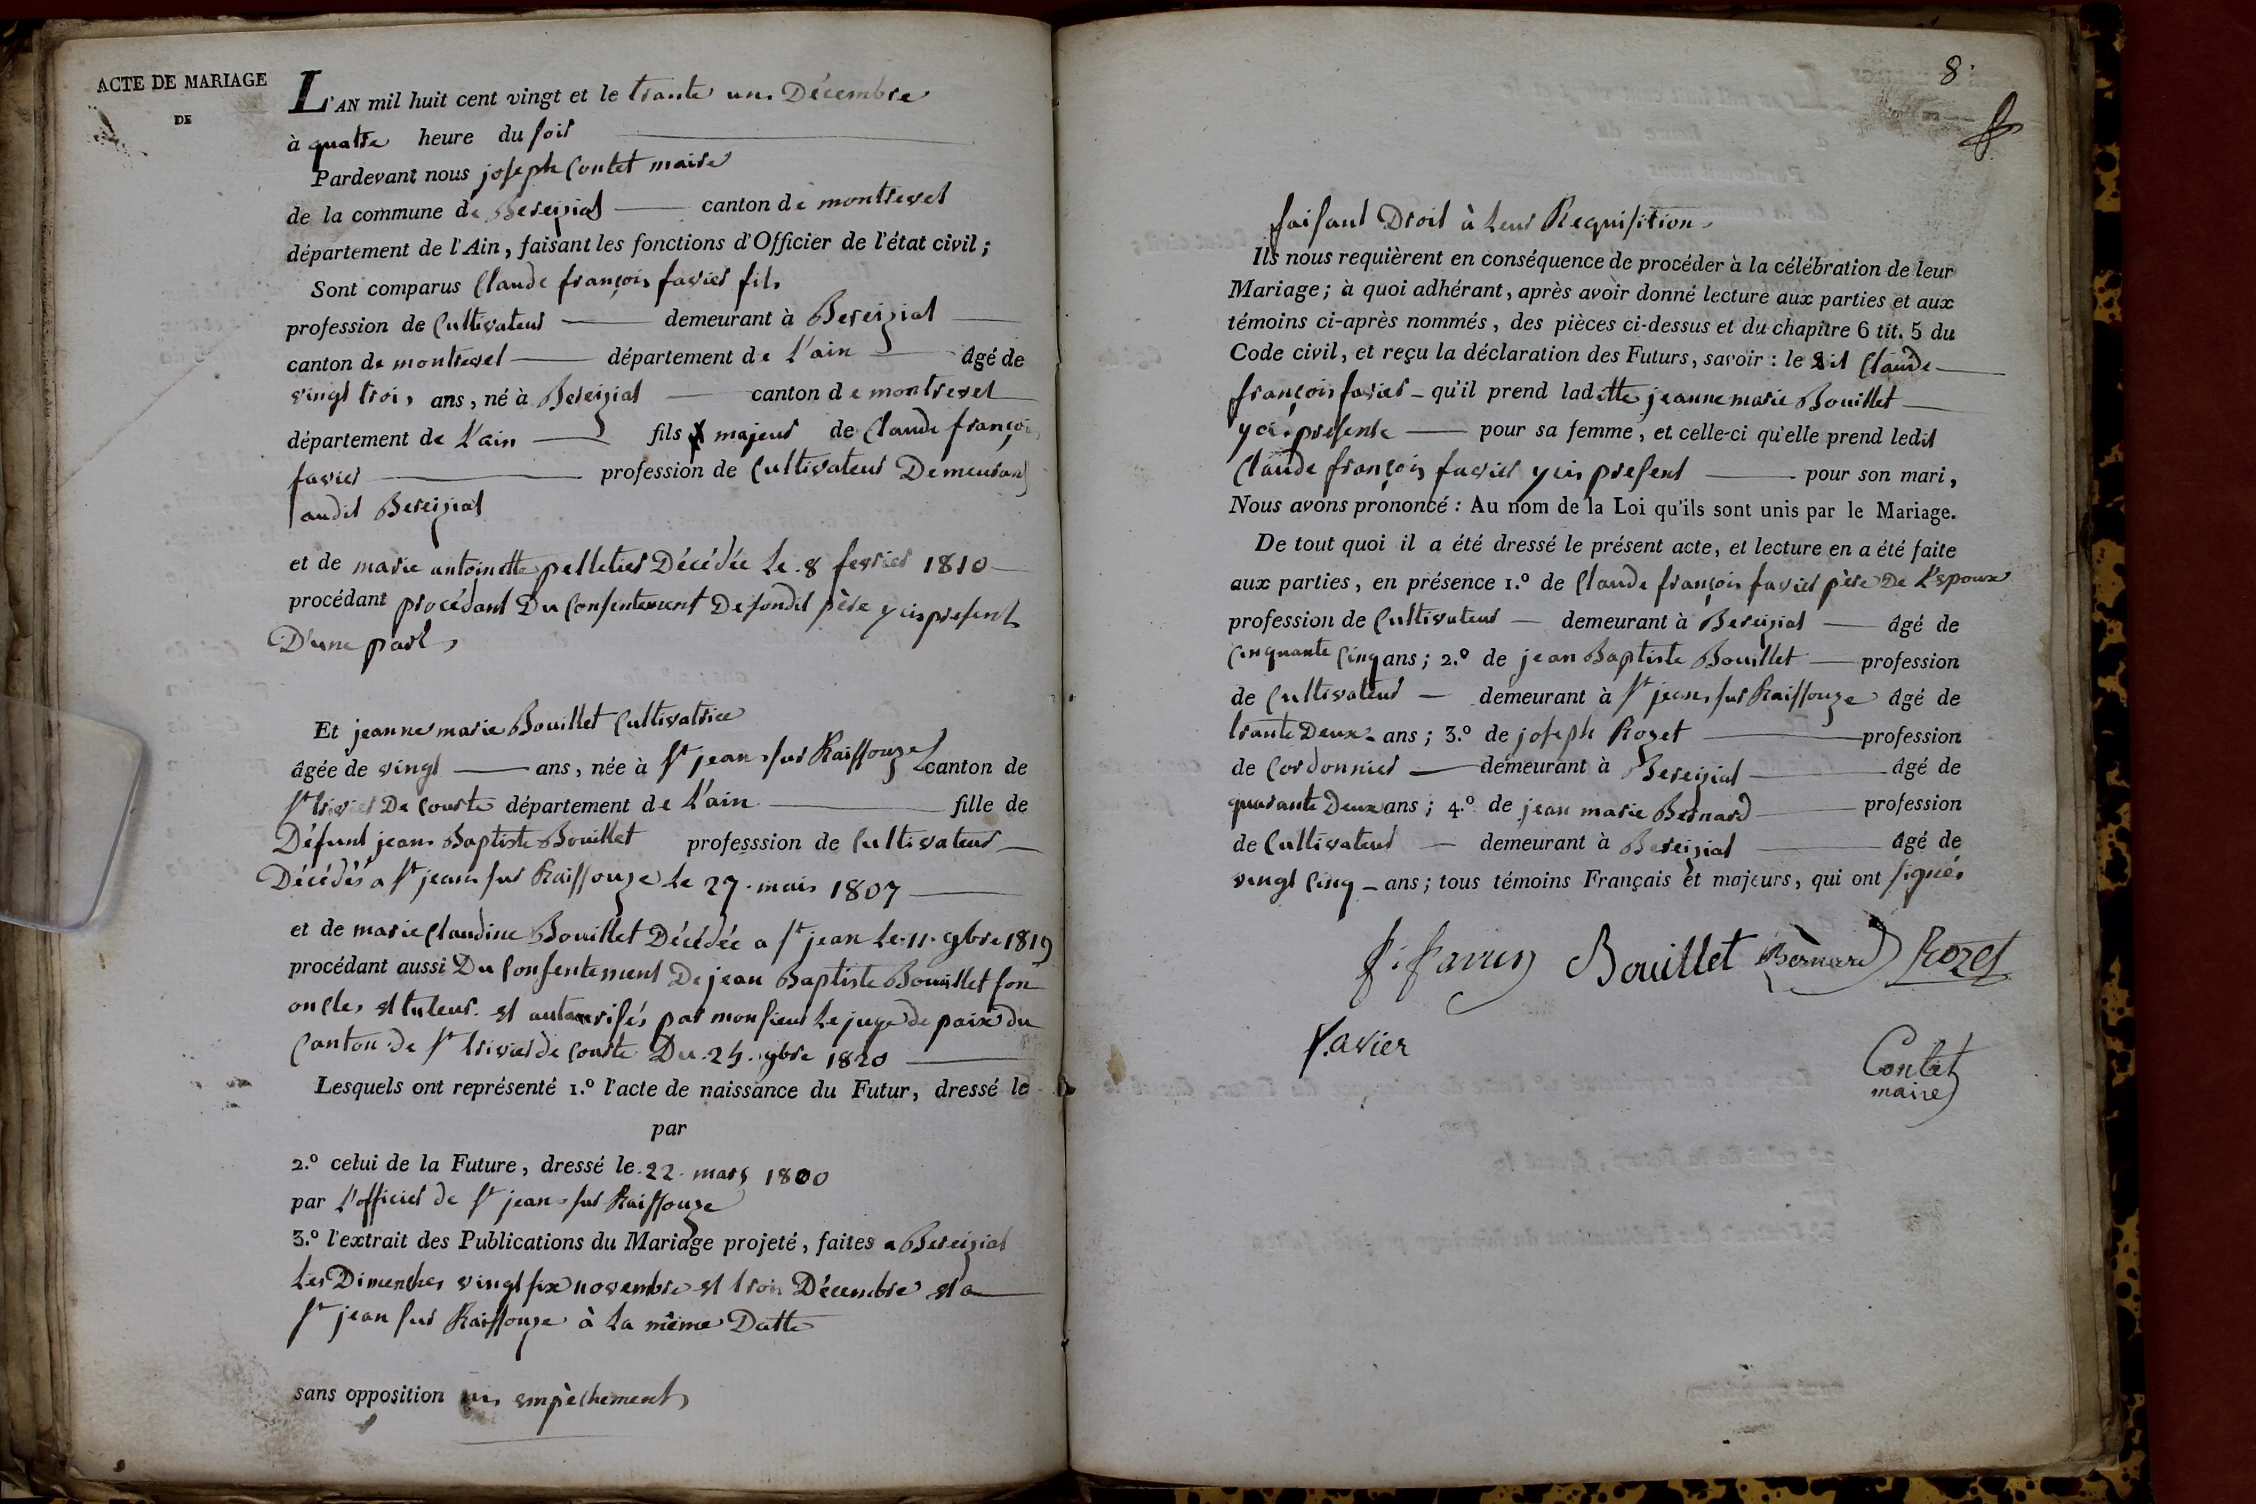 ACTE DE MARIAGE
DE
L'AN mil huit cent vingt et le trante un Décembre
à quatre heure du soir
Pardevant nous joseph Contet maire
de la commune de Bereiziat canton de montrevel
département de l'Ain, faisant les fonctions d'Officier de l'état civil;
Sont comparus Claude françois favier fils
profession de Cultivateur demeurant à Bereiziat
canton de montrevel département de L'ain âgé de
vingt trois ans, né à Bereiziat canton de montrevel
département de L'ain fils majeur de Claude françois
favier profession de Cultivateur Demeurant
audit Bereiziat
et de marie antoinette pelletier Décédée Le 8 fevrier 1810
procédant procédant Du Consentement De sondit père y cis present
D'une part
Et jeanne marie Bouillet Cultivatrice
âgée de vingt ans, née à St jean sur Raissouze canton de
St trivier De Courte département de L'ain fille de
Défunt jean Baptiste Bouillet professsion de Cultivateur
Décédés a St jean sur Raissouze Le 27 mais 1807
et de marie Claudine Bouillet Décédée a St jean Le 11 9bre 1819
procédant aussi Du Consentement De jean Baptiste Bouillet son
oncle et tuteur et autaurisés par monsieur Le juge de paix du
Canton de St trivier de Courte Du 24 9bre 1820
Lesquels ont représenté 1.º l'acte de naissance du Futur, dressé le
par
2.º celui de la Future, dressé le 22 mars 1800
par L'officier de St jean sur Raissouze
3.º l'extrait des Publications du Mariage projeté, faites a Bereiziat
Les Dimenches vingt six novembre et trois Décembre et a
St jean sur Raissouze à La même Datte
sans opposition empêchement
8
faisant Droit à Leur Requisition
Ils nous requièrent en conséquence de procéder à la célébration de leur
Mariage; à quoi adhérant, après avoir donné lecture aux parties et aux
témoins ci-après nommés, des pièces ci-dessus et du chapitre 6 tit. 5 du
Code civil, et reçu la déclaration des Futurs, savoir: le dit Claude
françois favier qu'il prend laditte jeanne marie Bouillet
y cis presente pour sa femme, et celle-ci qu'elle prend ledit
Claude françois favier y cis present pour son mari,
Nous avons prononcé: Au nom de la Loi qu'ils sont unis par le Mariage.
De tout quoi il a été dressé le présent acte, et lecture en a été faite
aux parties, en présence 1.º de Claude françois favier père De L'epoux
profession de Cultivateur demeurant à Bereiziat âgé de
Cinquante Cinq ans; 2.º de jean Baptiste Bouillet profession
de Cultivateur demeurant à St jean sur Raissouze âgé de
trante Deux ans; 3.º de joseph Rozet profession
de Cordonnier demeurant à Bereiziat âgé de
quarante Deux ans; 4.º de jean marie Bernard profession
de Cultivateur demeurant à Bereiziat âgé de
vingt Cinq ans; tous témoins Français et majeurs, qui ont signés
f. favier Bouillet Bernard Rozet
favier
Contet
maire